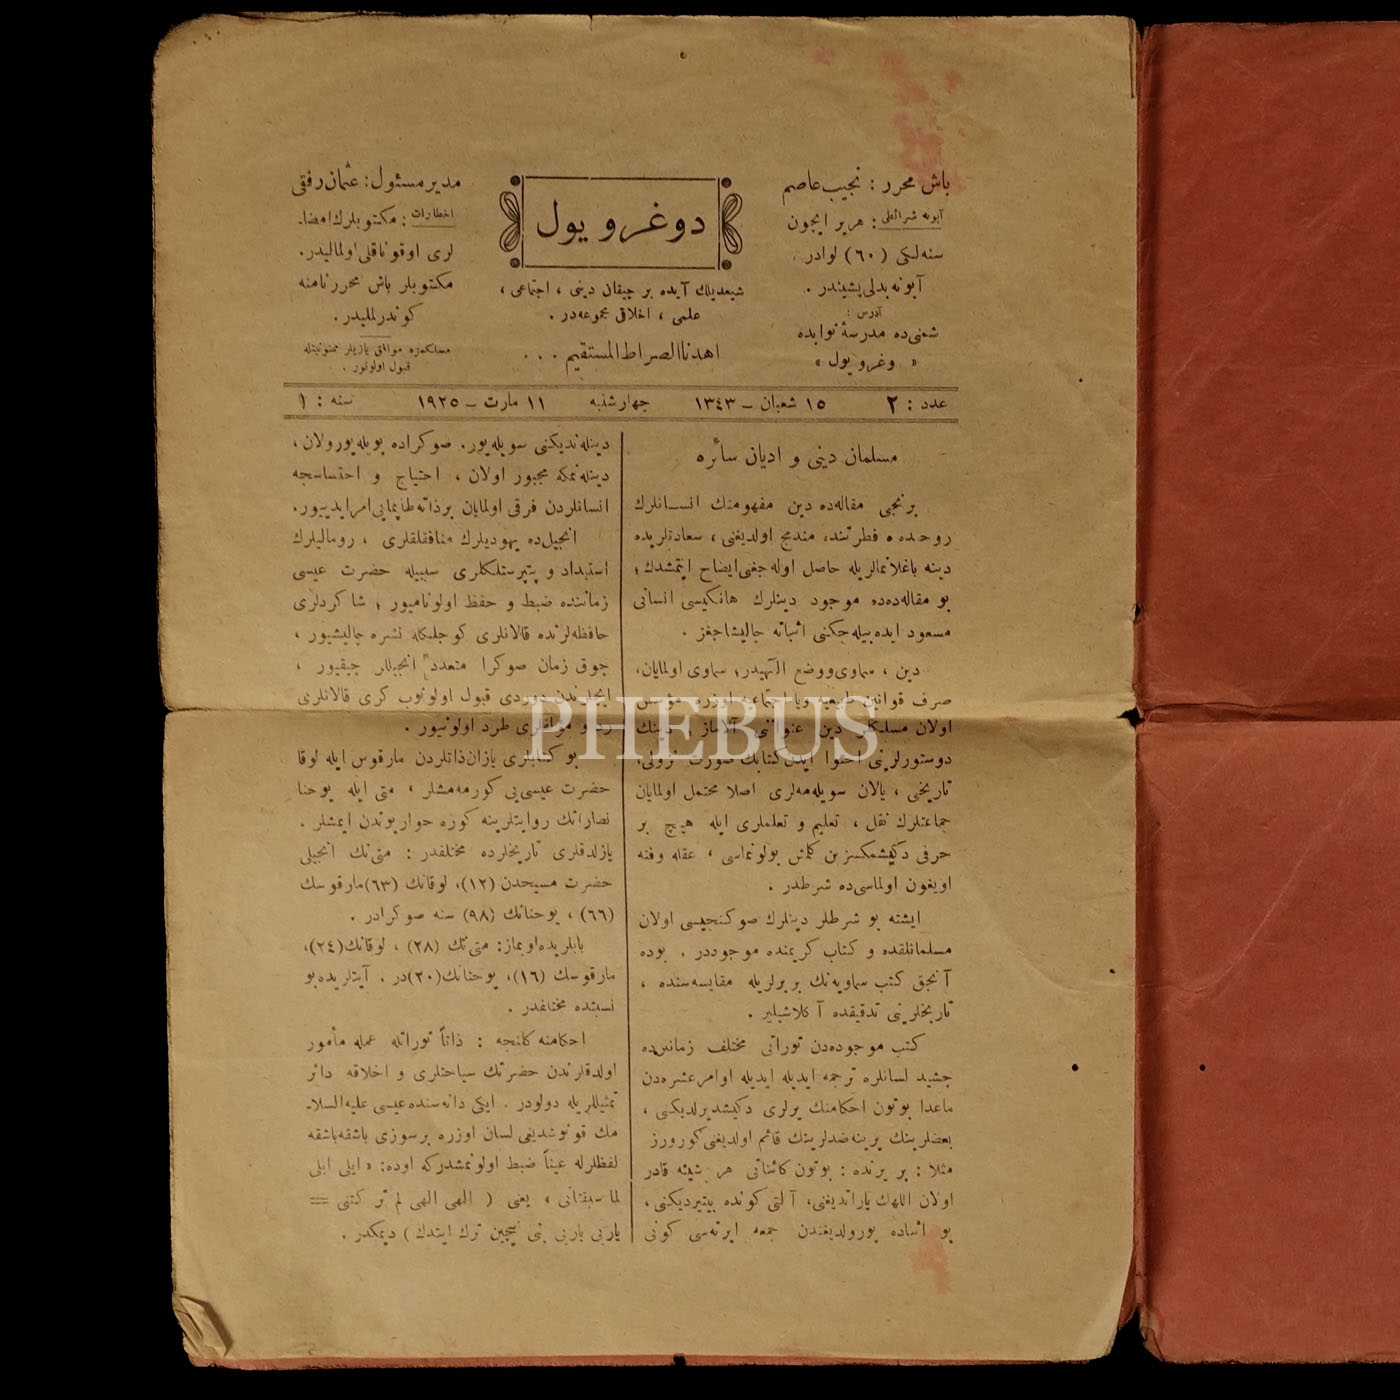 باش محرر : نجیب عاصم
آبونه شرائطی : هریر ایچون
سنه‌لکی (٦٠) لوادر.
آبونه بدلی پشیندر .
آدرس :
شمنی‌ده مدرسهٔ نوابده
« وغرو یول »
دوغرو یول
شیمدیلك آیده بر چیقان دینی ، اجتماعی ،
علمی ، اخلاقی مجموعه‌در .
اهدنا الصراط المستقیم . . .
مدیر مسئول : عثمان رفقی
اخطارات : مکتوبلرك امضا۔
لری اوقوناقلی اولمالیدر.
مکتوبلر باش محرر نامنه
کوندرلملیدر.
مسلکمزه موافق یازیلر ممنونیتله
قبول اولونور .
عدد : ٢ ١٥ شعبان ـ ١٣٤٣ چهارشنبه ١١ مارت ـ ١٩٢٥ سنه : ١
مسلمان دینی و ادیان سائره
برنجی مقاله‌ده دین مفهومنك انسانلرك
روحنده فطرتنده مندمج اولدیغنی ، سعادتلریده
دینه باغلانمالریله حاصل اوله جغنی ایضاح ایتمشدك ؛
بو مقاله‌ده‌ده موجود دینلرك هانکیسی انسانی
مسعود ایده بیله جکنی اثباته چالیشاجغز .
دین ، سماوی و وضع الٓهیدر ؛ سماوی اولمایان،
صرف قوانین طبیعیه ویا اجتماعیه اوزره مؤسس
اولان مسلکلر دین عنوانی آلاماز ؛ دینك
دوستورلرینی احتوا ایدن کتابك صورت نزولی،
تاریخی ، یالان سویله‌مه‌لری اصلا محتمل اولمایان
جماعتلرك نقل ، تعلیم و تعلملری ایله هیچ بر
حرفی دکیشمکسزین کلمش بولونماسی ، عقله وفنه
اویغون اولماسی‌ده شرطدر .
ایشته بو شرطلر دینلرك صوکنجیسی اولان
مسلمانلقده و کتاب کریمنده موجوددر . بوده
آنجق کتب سماویه‌نك بربرلریله مقایسه‌سنده ،
تاریخلرینی تدقیقده آکلاشیلیر .
کتب موجوده‌دن توراتی مختلف زمانلرده
چشید لسانلره ترجمه ایدیله ایدیله اوامر عشره‌دن
ماعدا بوتون احکامنك یرلری دکیشدیرلدیکنی ،
بعضلرینك یرینه ضدلرینك قائم اولدیغنی کورورز
مثلا : بر یرنده : بوتون کائناتی هر شیئه قادر
اولان اللهك یاراتدیغنی، آلتی کونده بیتیردیکنی،
بو اثناده یورولدیغندن جمعه ایرته‌سی کونی
دینله‌ندیکنی سویله‌یور. صوکراده بویله یورولان ،
دینله‌نمکه مجبور اولان ، احتیاج و احتساسجه
انسانلردن فرقی اولمایان برذاته طاپمایی امر ایدییور.
انجیل‌ده یهودیلرك منافقلقلری ، رومالیلرك
استبداد و پتپرستلکلری سببیله حضرت عیسی
زماننده ضبط و حفظ اولونامیور ؛ شاکردلری
حافظه‌لرنده قالانلری کوجلکله نشره چالیشیور ،
چوق زمان صوکرا متعدد انجیللر چیقیور ،
ایچلرندن دوردی قبول اولونوب کری قالانلری
رد و مؤلفلری طرد اولونیور .
بو کتابلری یازان ذاتلردن مارقوس ایله لوقا
حضرت عیسی‌یی کورمه‌مشلر ، متی ایله یوحنا
نصارانك روایتلرینه کوره حواریوندن ایمشلر .
یازلدقلری تاریخلرده مختلفدر : متی‌نك انجیلی
حضرت مسیحدن (١٢)، لوقانك (٦٣) مارقوسك
(٦٦) ، یوحنانك (٩٨) سنه صوکرادر .
بابلریده اویماز : متی‌نك (٢٨) ، لوقانك (٢٤)،
مارقوسك (١٦)، یوحنانك (٢٠) در . آیتلریده بو
نسبتده مختلفدر .
احکامنه کلنجه : ذاتاً توراتله عمله مأمور
اولدقلرندن حضرتك سیاحتلری و اخلاقه دائر
تمثیللریله دولودر . ایکی دانه‌سنده عیسی علیه السلا۔
مك قونوشدیغی لسان اوزره برسوزی باشقه باشقه
لفظلرله عیناً ضبط اولونمشدرکه اوده: « ایلی ایلی
لما سبقتانی » یعنی ( الهی الهی لم ترکتنی =
یاربی یاربی بنی نیچین ترك ایتدك ) دیمکدر .
PHEBUS